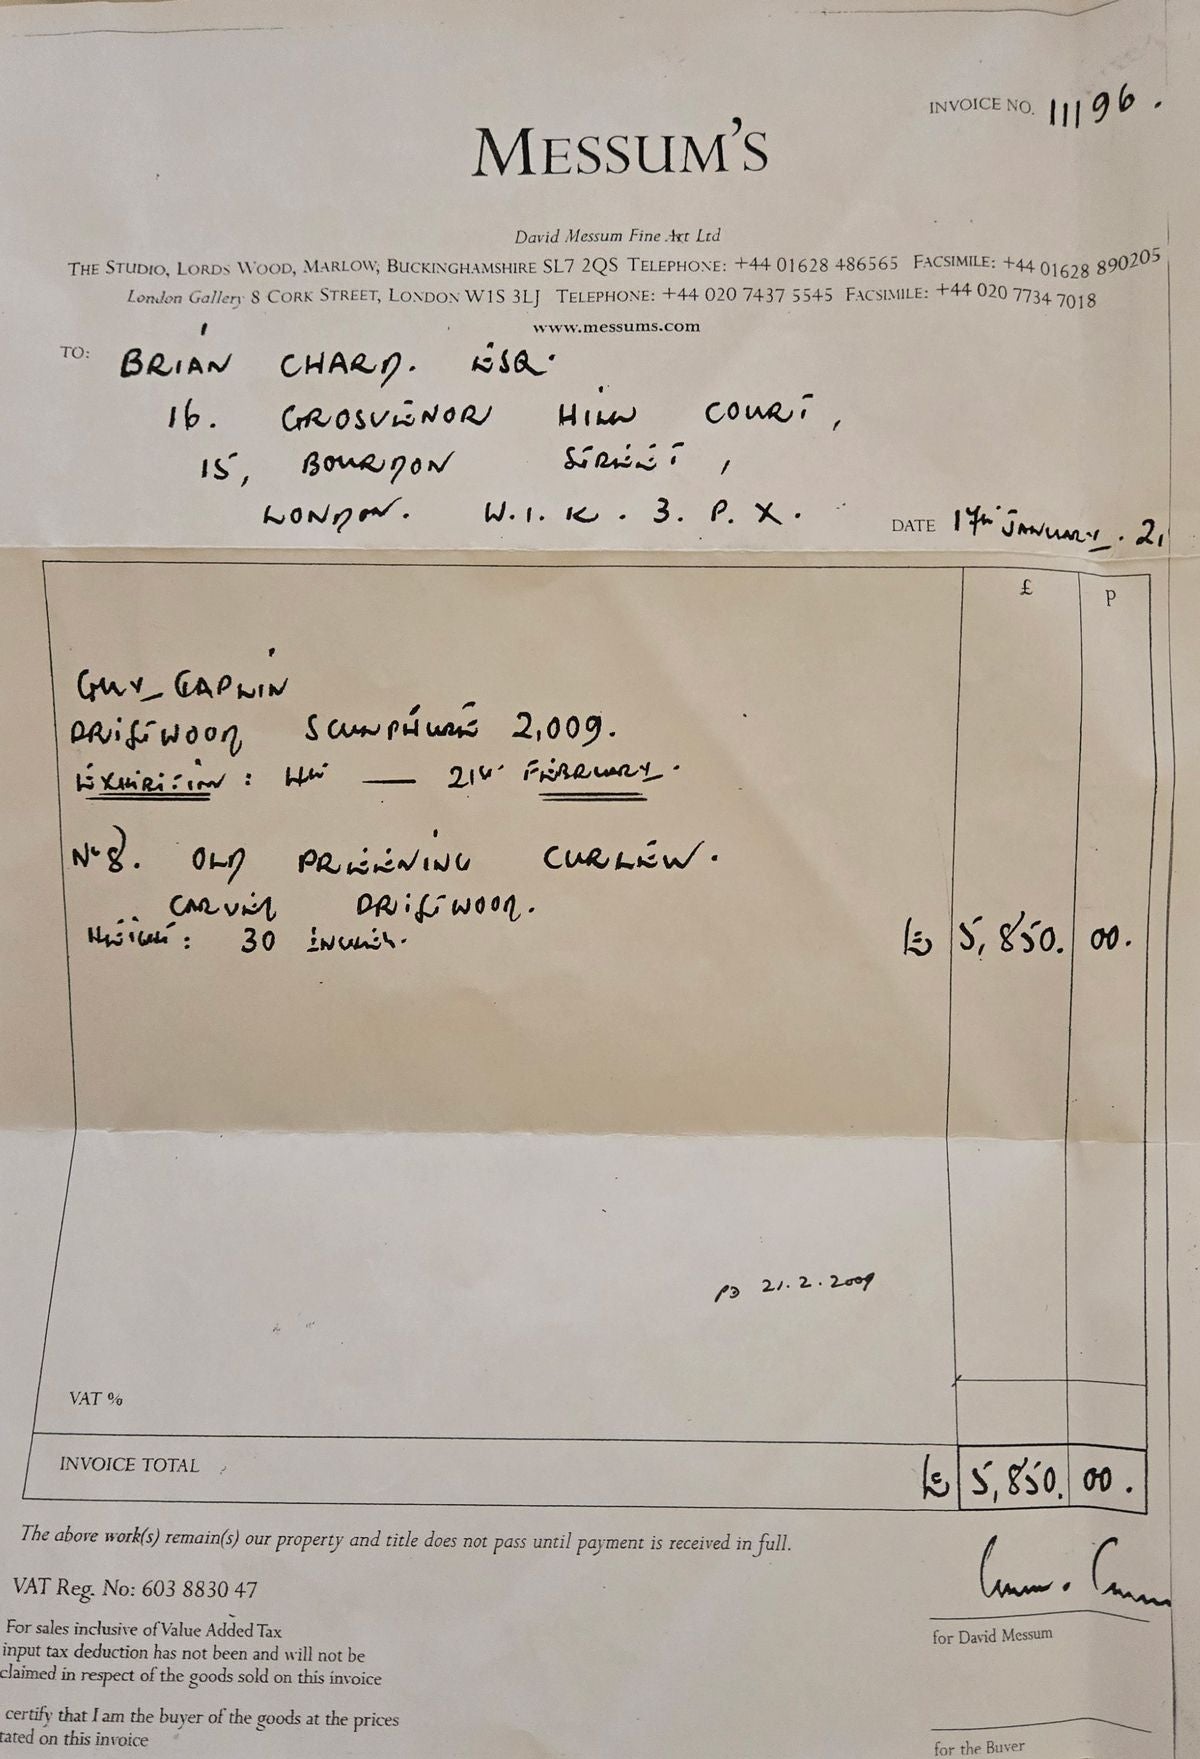 INVOICE NO. 11196.
MESSUM'S
David Messum Fine Art Ltd
THE STUDIO, LORDS WOOD, MARLOW, BUCKINGHAMSHIRE SL7 2QS TELEPHONE: +44 01628 486565 FACSIMILE: +44 01628 890205
London Gallery 8 CORK STREET, LONDON W1S 3LJ TELEPHONE: +44 020 7437 5545 FACSIMILE: +44 020 7734 7018
www.messums.com
TO: BRIAN CHARD. ESQ.
16. GROSVENOR HILL COURT,
15, BOURDON STREET,
LONDON. W.1.K. 3.P.X.
DATE 17th JANUARY. 2
£ p
GUY
DRIFTWOOD SCULPTURE 2,009.
EXHIBITION: — 21st FEBRUARY.
No 8. OLD PREENING CURLEW.
CARVED DRIFTWOOD.
HEIGHT: 30 INCHES. £ 5,850. 00.
PD 21.2.2009
VAT %
INVOICE TOTAL £ 5,850. 00.
The above work(s) remain(s) our property and title does not pass until payment is received in full.
VAT Reg. No: 603 8830 47
For sales inclusive of Value Added Tax
input tax deduction has not been and will not be
claimed in respect of the goods sold on this invoice
for David Messum
certify that I am the buyer of the goods at the prices
tated on this invoice
for the Buyer